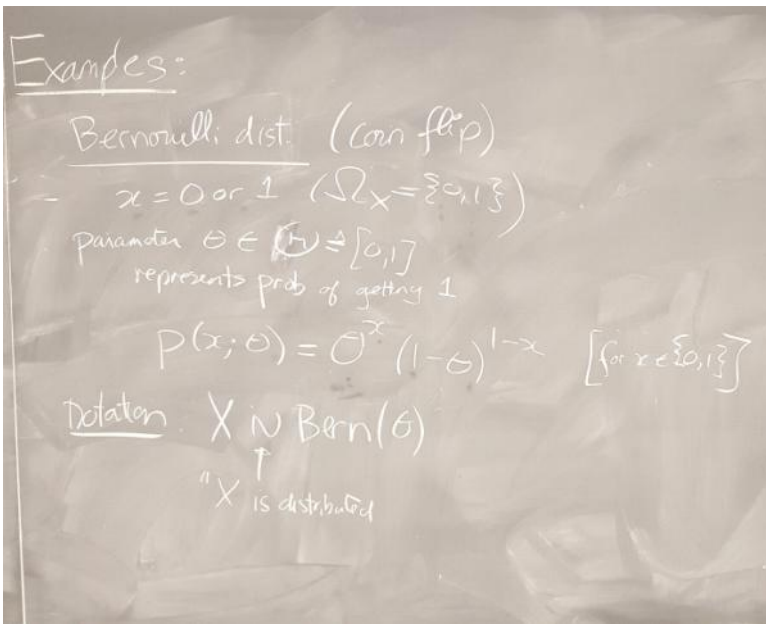 Examples:
Bernoulli dist. (coin flip)
- x = 0 or 1 (Ω_X = {0,1})
parameter θ ∈ Θ ≜ [0,1]
represents prob of getting 1
p(x; θ) = θ^x (1-θ)^{1-x} [for x ∈ {0,1}]
Notation. X ~ Bern(θ)
↑
"X is distributed